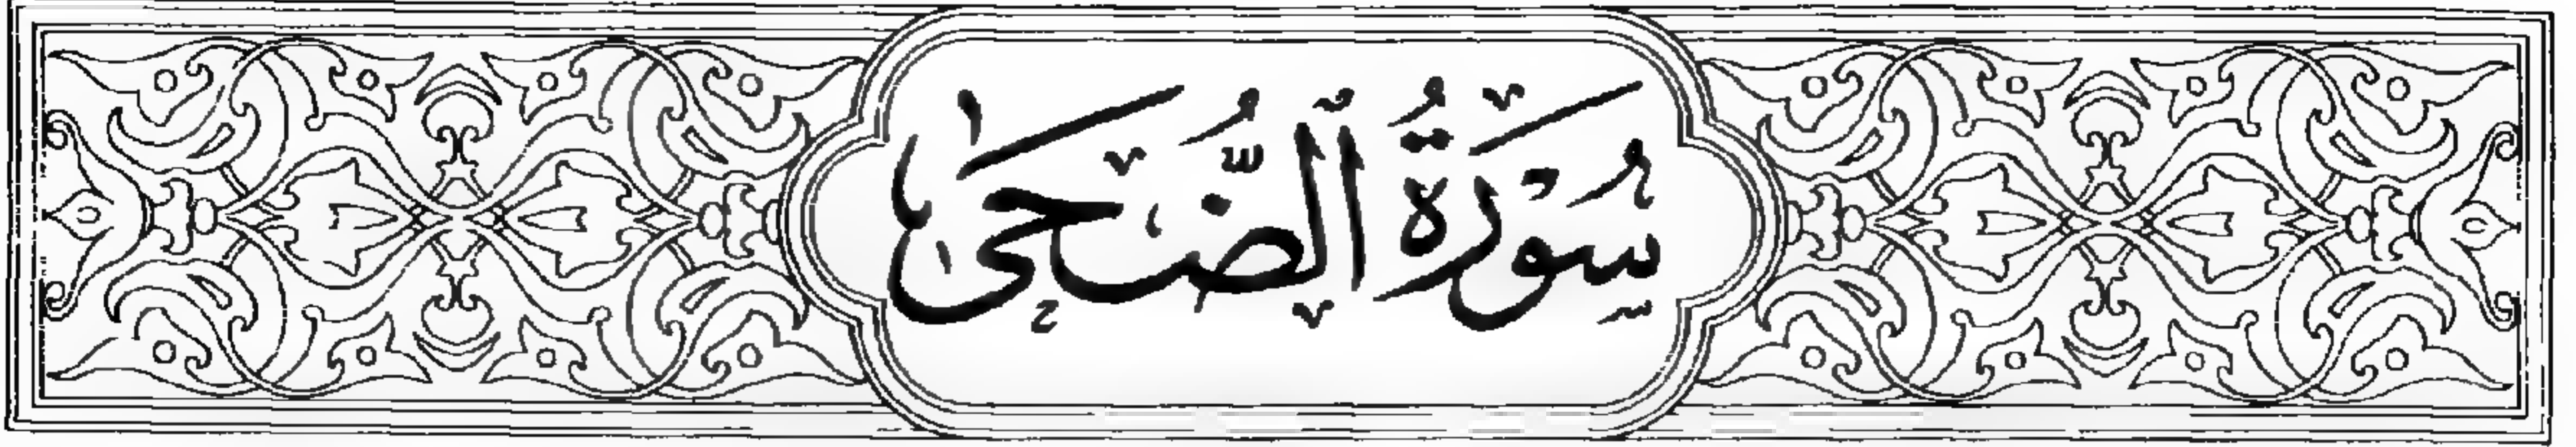 سُورَةُ ٱلضُّحَىٰ